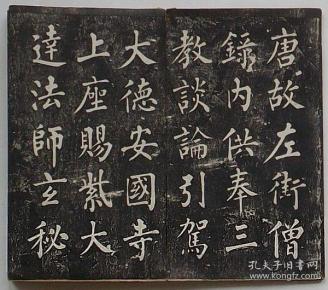 唐故左街僧
錄內供奉三
教談論引駕
大德安國寺
上座賜紫大
達法師玄秘
孔夫子旧书网